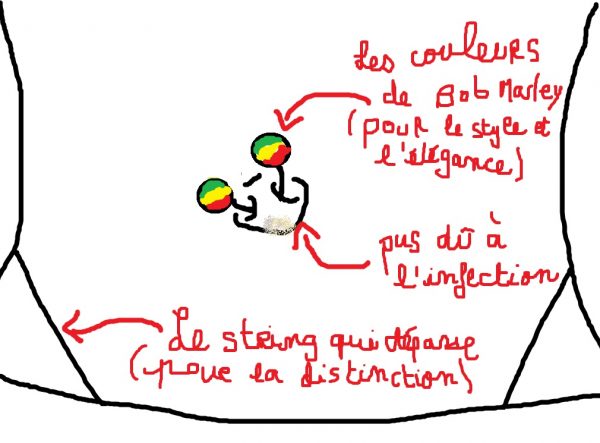 Les couleurs
de Bob Marley
(pour le style et
l'élégance)
pus dû à
l'infection
Le string qui dépasse
(pour la distinction)